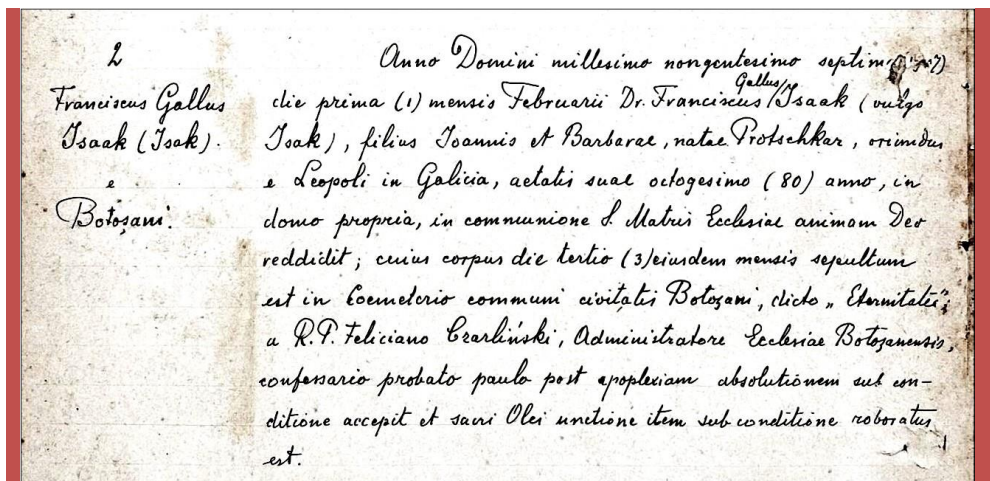 2
Franciscus Gallus
Isaak (Isak).
e
Botoșani.
Anno Domini millesimo nongentesimo septimo (1907)
die prima (1) mensis Februarii Dr. Franciscus Gallus/Isaak (vulgo
Isak), filius Ioannis et Barbarae, natae Protschkar, oriundus
e Leopoli in Galicia, aetatis suae octogesimo (80) anno, in
domo propria, in communione S. Matris Ecclesiae animam Deo
reddidit; cuius corpus die tertio (3) eiusdem mensis sepultum
est in Coemeterio communi civitatis Botoșani, dicto „Eternitatea";
a R. P. Feliciano Czarliński, Administratore Ecclesiae Botoșanensis,
confessario probato paulo post apoplexiam absolutionem sub con-
ditione accepit et sacri Olei unctione item sub conditione roboratus
est.